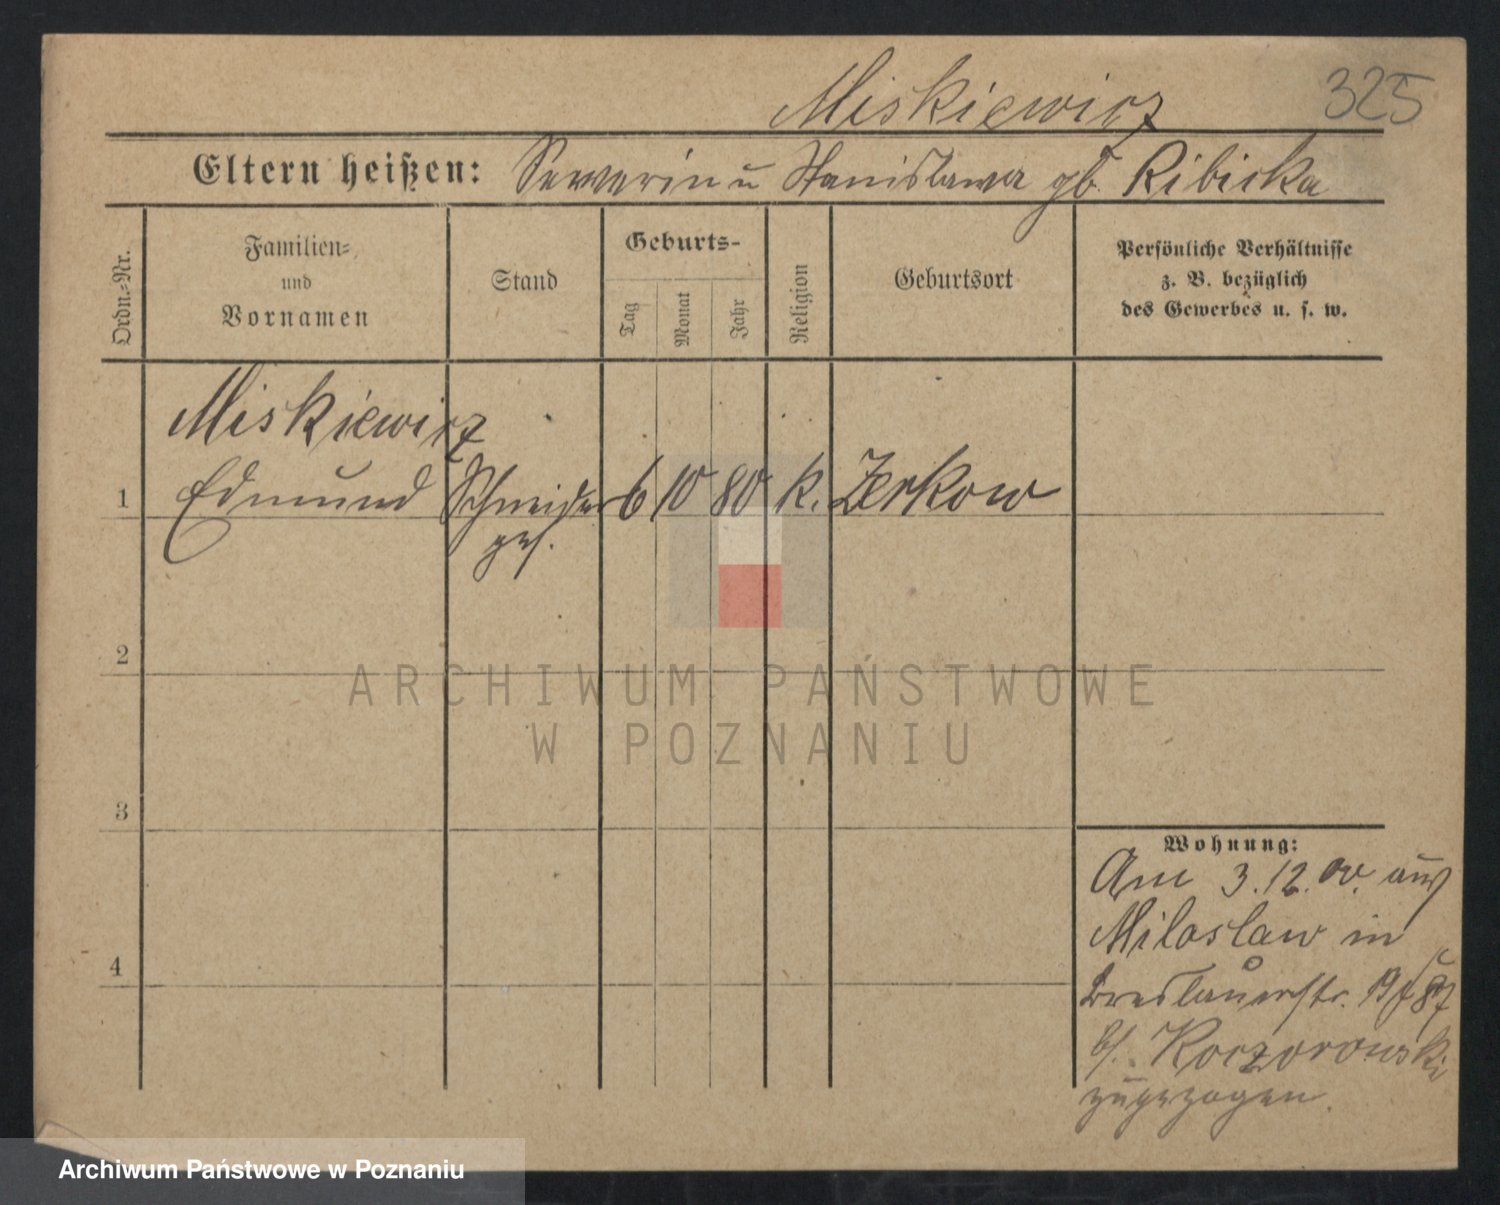 Miskiewicz
325
Eltern heißen: Severin u Stanislawa gb. Ribicka
Ordn.-Nr.
Familien-
und
Vornamen
Stand
Geburts-
Tag
Monat
Jahr
Religion
Geburtsort
Persönliche Verhältnisse
z. B. bezüglich
des Gewerbes u. s. w.
Miskiewicz
1 Edmund Schneider 6 10 80 k. Zerkow
ges.
2
ARCHIWUM PAŃSTWOWE
W POZNANIU
3
4
Wohnung:
Am 3.12.00. aus
Miloslaw in
Breslauerstr.
bs. Koczorowski
zugezogen.
Archiwum Państwowe w Poznaniu